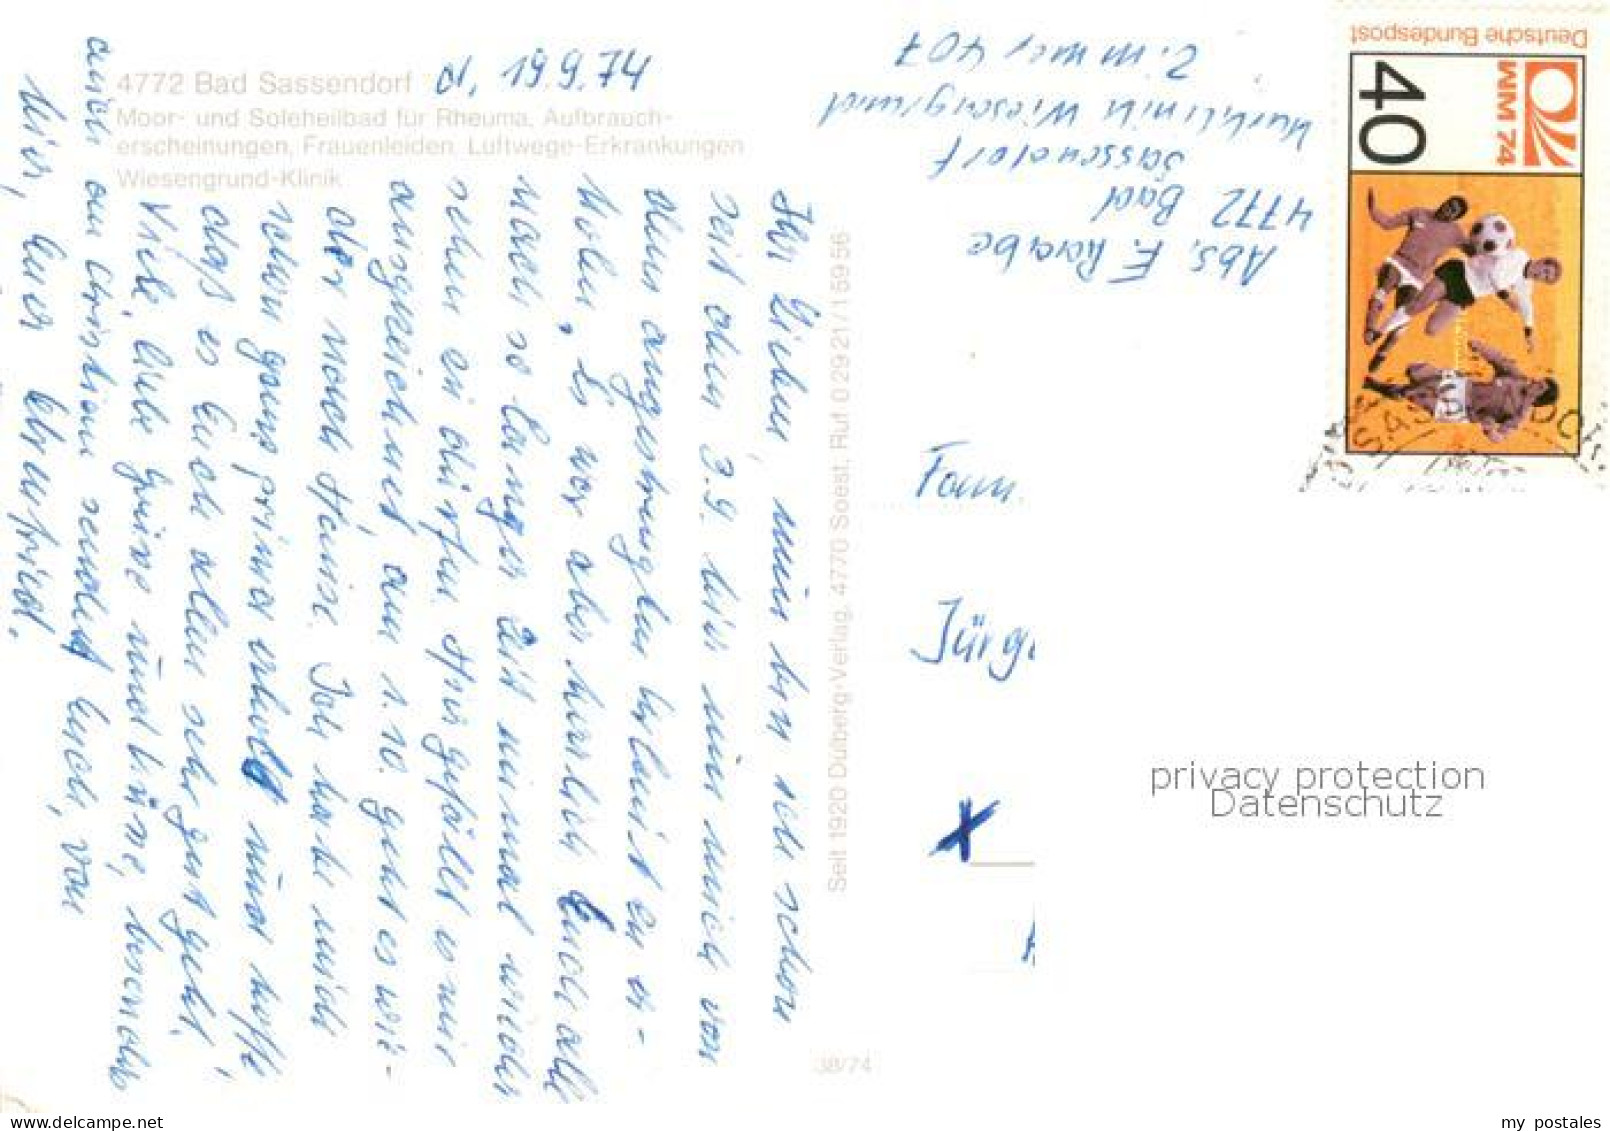 4772 Bad Sassendorf d, 19.9.74
Moor- und Soleheilbad für Rheuma, Aufbrauch-
erscheinungen, Frauenleiden, Luftwege-Erkrankungen
Wiesengrund-Klinik
Ihr Lieben, nun bin ich schon
seit dem 3.9. hier um mich von
dem angestrengten zu er-
holen. Es war aber herrlich Euch alle
nach so langer Zeit einmal wieder
sehen zu dürfen. Hier gefällt es mir
ausgezeichnet am 1.10. geht es wie-
der nach Hause. Ich habe mich
schon ganz prima erholt und hoffe
dass es Euch allen sehr gut geht.
Viele liebe Grüsse und Küsse, besonders
auch an Christian sendet Euch, von
hier, Euer
Seit 1920 Dülberg-Verlag, 4770 Soest, Ruf 02921/15956
38/74
Abs. F. Rabe
4772 Bad
Sassendorf
Kurklinik Wiesengrund
Zimmer 407
Deutsche Bundespost
WM 74
40
SASSENDORF
Fam.
Jürg
privacy protection
Datenschutz
my postales